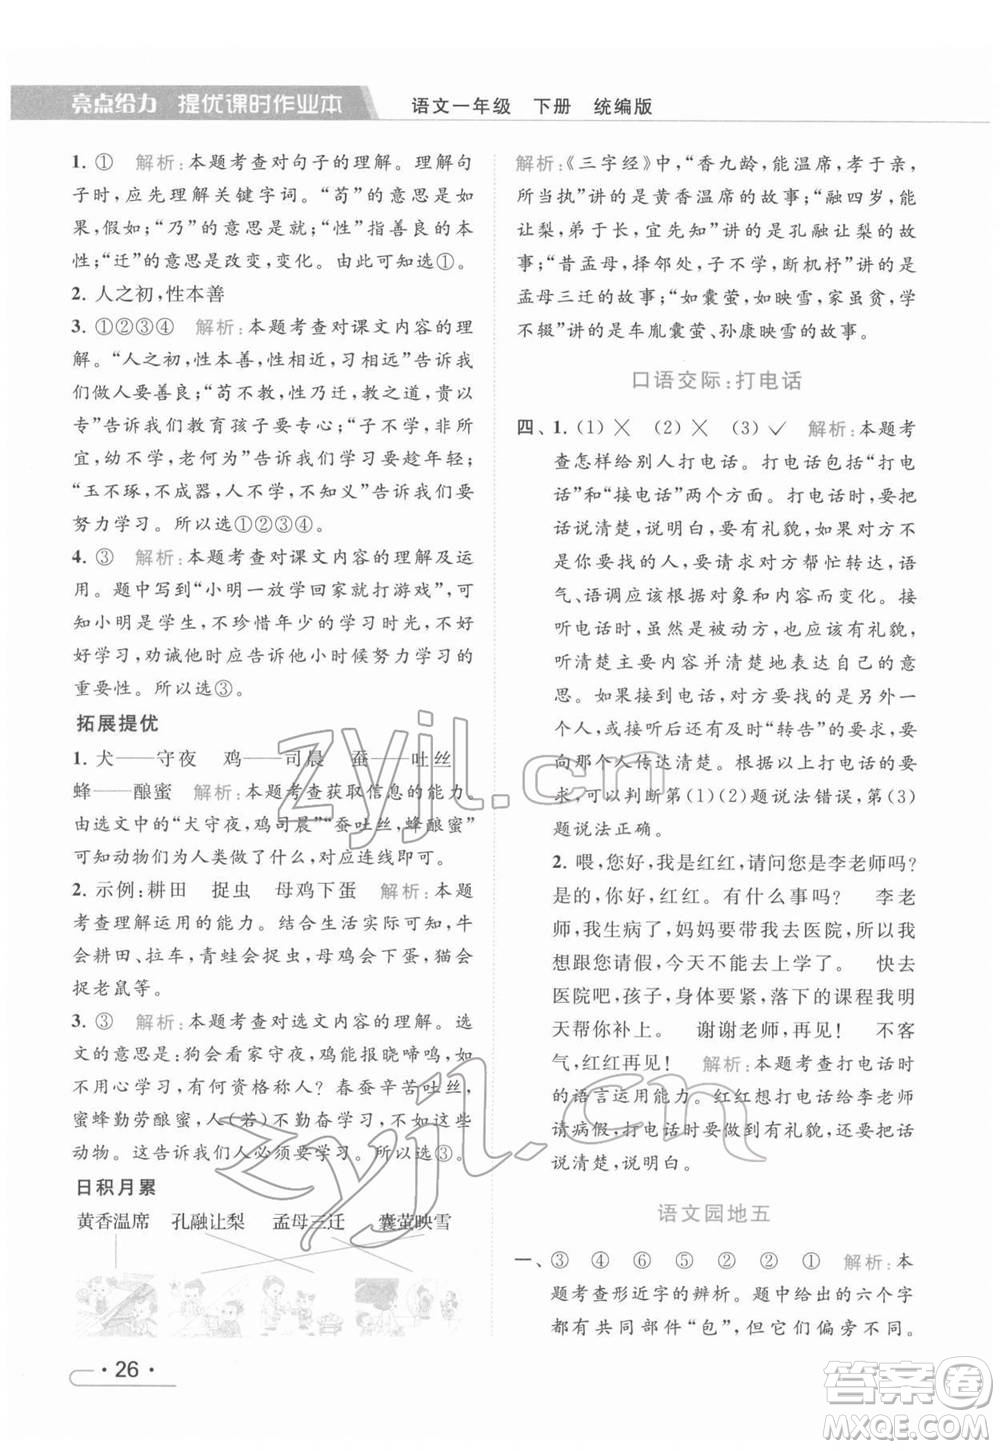 亮点给力 提优课时作业本 语文一年级 下册 统编版
1. ① 解析:本题考查对句子的理解。理解句
子时,应先理解关键字词。“苟”的意思是如
果,假如;“乃”的意思是就;“善”指善良的本
性;“迁”的意思是改变,变化。由此可知选①。
2. 人之初,性本善
3. ①②③④ 解析:本题考查对课文内容的理
解。“人之初,性本善,性相近,习相远”告诉我
们做人要善良;“苟不教,性乃迁,教之道,贵以
专”告诉我们教育孩子要专心;“子不学,非所
宜,幼不学,老何为”告诉我们学习要趁年轻;
“玉不琢,不成器,人不学,不知义”告诉我们要
努力学习。所以选①②③④。
4. ③ 解析:本题考查对课文内容的理解及运
用。题中写到“小明一放学回家就打游戏”,小
明是学生,不珍惜年少的学习时光,不去好
好学习,劝诫他时应告诉他小时候努力学习的
重要性。所以选③。
拓展提优
1. 犬——守夜 鸡——司晨 蚕——吐丝
蜂——酿蜜 解析:本题考查获取信息的能力。
由选文中的“犬守夜,鸡司晨”“蚕吐丝,蜂酿蜜”
可知动物们为人类做了什么,对应连线即可。
2. 示例:耕田 捉虫 母鸡下蛋 解析:本题
考查理解运用的能力。结合生活实际可知,牛
会耕田、拉车,青蛙会捉虫,母鸡会下蛋,猫会
捉老鼠等。
3. ③ 解析:本题考查对选文内容的理解。选
文的意思是:狗会看家守夜,鸡能报晓啼鸣,如
果不用心学习,有何资格称人? 春蚕辛苦吐丝,
蜜蜂勤劳酿蜜,人(若)不勤奋学习,不如这些小
动物。这告诉我们人必须要学习。所以选③。
日积月累
黄香温席 孔融让梨 孟母三迁 囊萤映雪
· 26 ·
解析:《三字经》中,“香九龄,能温席,孝于亲,
所当执”讲的是黄香温席的故事;“融四岁,能
让梨,弟于长,宜先知”讲的是孔融让梨的故
事;“昔孟母,择邻处,子不学,断机杼”讲的是
孟母三迁的故事;“如囊萤,如映雪,家虽贫,学
不辍”讲的是车胤囊萤、孙康映雪的故事。
口语交际:打电话
四、1. (1) ✕ (2) ✕ (3) ✓ 解析:本题考
查怎样给别人打电话。打电话包括“打电
话”和“接电话”两个方面。打电话时,要把
话说清楚,说明白,要有礼貌,如果对方不是
要找的人,而又需要对方帮忙转达,语
气、语调应该根据对象和内容而变化。接
听电话时,虽然是被动方,但也应该有礼貌,
听清楚对方意思并清楚地表达自己的意
思。如果接到电话,对方要找的是另外一个
人,或者接听后对方提出了“转告”的要求,要
尽量满足对方的要求。结合以上打电话的要
求,可以判断第(1)(2)题说法错误,第(3)
题说法正确。
2. 喂,您好,我是红红,请问您是李老师吗?
是的,你好,红红。有什么事吗? 李老
师,我生病了,妈妈要带我去医院,所以我
想跟您请假,今天不能去上学了。 快去
医院吧,孩子,身体要紧,落下的课程我明
天帮你补上。 谢谢老师,再见! 不客
气,红红再见! 解析:本题考查打电话时
的语言运用能力。红红想打电话给李老师
请病假,打电话时要有礼貌,并且要把话说
说清楚,说明白。
语文园地五
一、③ ④ ⑥ ⑤ ② ① 解析:本
题考查形近字的辨析。题中的六个字
都有共同部件“包”,但偏旁不同。
答案圈
MXQE.COM
zyjl.cn
zyjl.cn